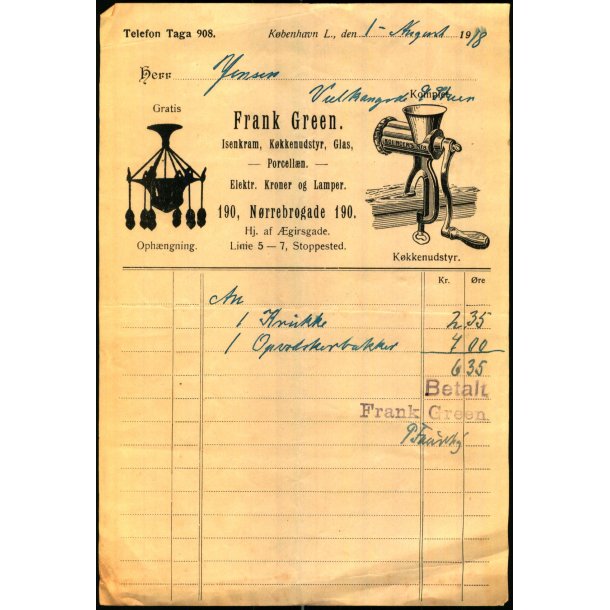 Telefon Taga 908. København L., den 1 - August 1918
Herr Jensen
Komplet
Gratis
Frank Green.
Isenkram, Køkkenudstyr, Glas,
— Porcellæn. —
Elektr. Kroner og Lamper.
190, Nørrebrogade 190.
Hj. af Ægirsgade.
Linie 5 — 7, Stoppested.
Ophængning.
Køkkenudstyr.
Kr. Øre
An
1 Krukke 2 35
1 Opvaskerbakker 4 00
6 35
Betalt
Frank Green